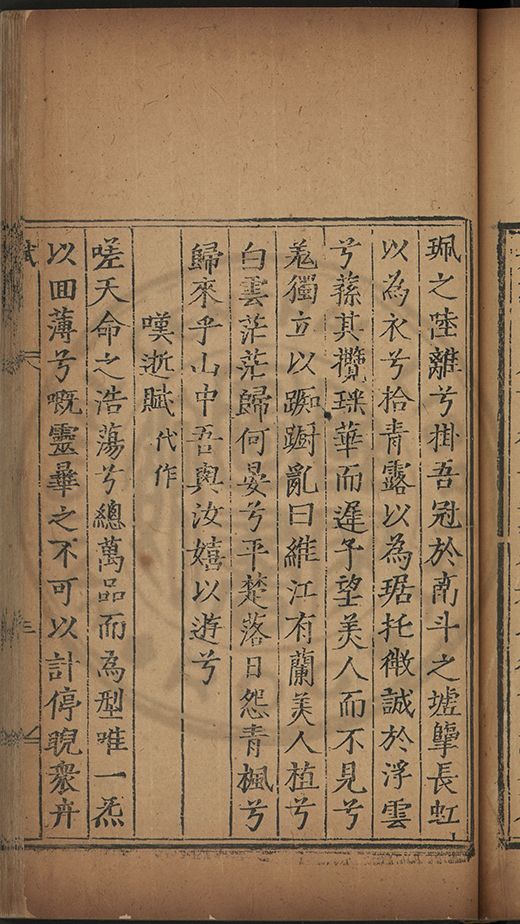 珮之陸離兮掛吾冠於南斗之墟攀長虹
以為衣兮拾青露以為琚托微誠於浮雲
兮蓀其攬瑤華而遲予望美人而不見兮
羌獨立以踟蹰亂曰維江有蘭美人植兮
白雲茫茫歸何晏兮平楚落日怨青楓兮
歸來乎山中吾與汝嬉以遊兮
嘆逝賦代作
嗟天命之浩蕩兮總萬品而為型唯一炁
以回薄兮嘅靈彞之不可以計停睨衆卉
賦
三